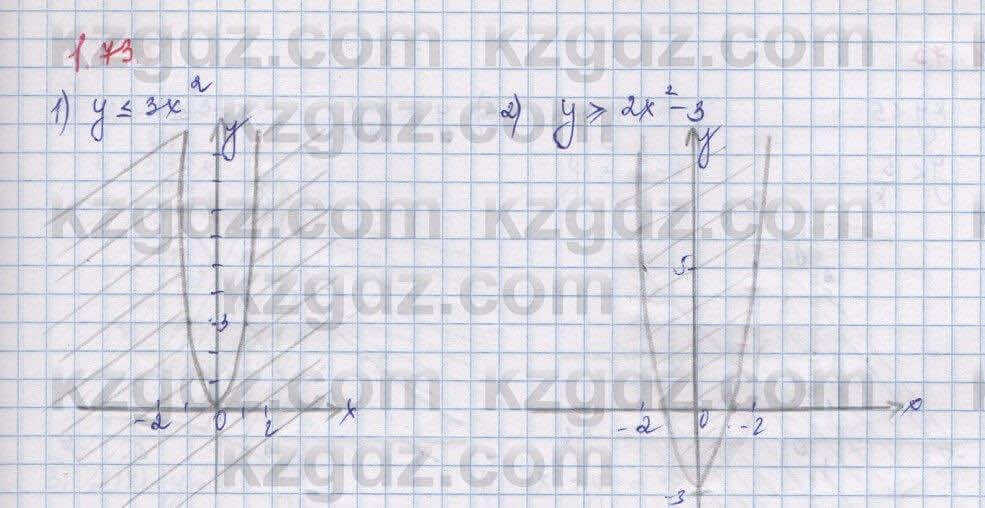 kzgdz.com kzgdz.com
1.73.
1) y ≤ 3x² 2) y ≥ 2x² - 3
kzgdz.com kzgdz.com
y y
kzgdz.com kzgdz.com
5
kzgdz.com kzgdz.com
3
kzgdz.com kzgdz.com
-2 0 2 x -2 0 -2 x
kzgdz.com kzgdz.com
-3